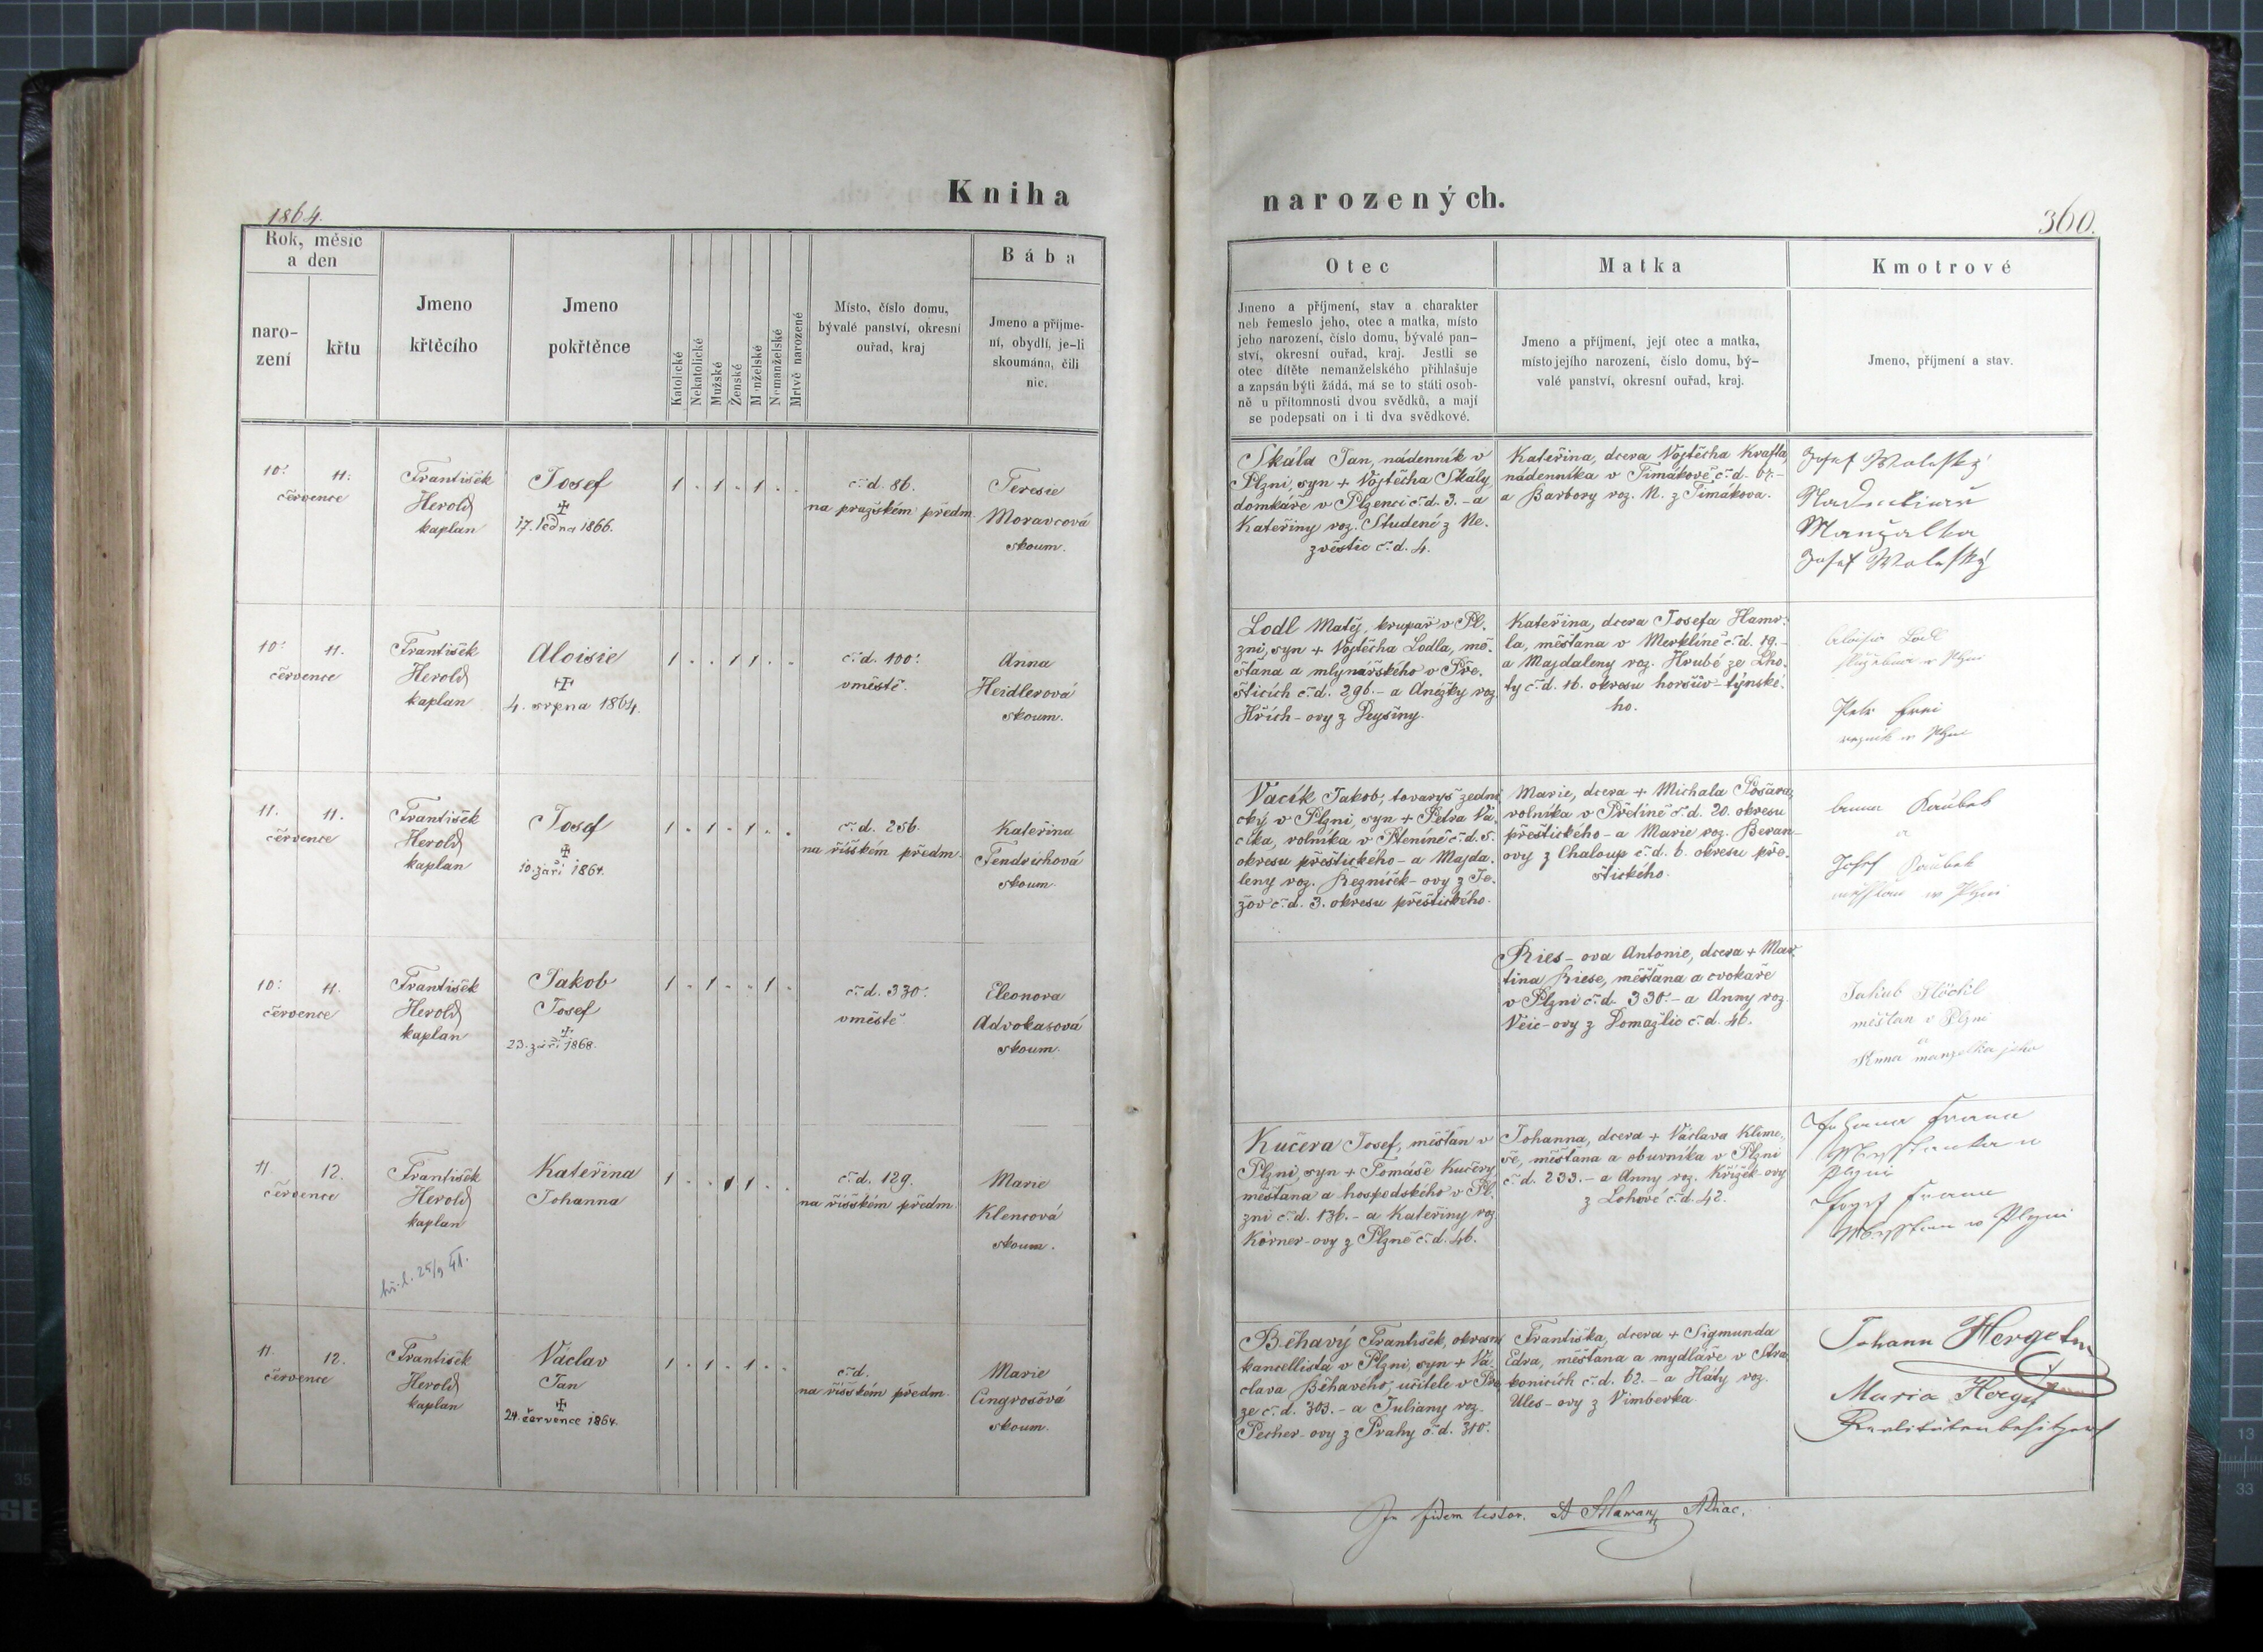 Kniha
1864.
Rok, měsíc
a den
naro-
zení
křtu
Jmeno
křtěcího
Jmeno
pokřtěnce
Katolické
Nekatolické
Mužské
Ženské
Manželské
Nemanželské
Mrtvě narozené
Místo, číslo domu,
bývalé panství, okresní
ouřad, kraj
Bába
Jmeno a příjme-
ní, obydlí, je-li
skoumána, čili
nic.
10. 11.
července
František
Herold
kaplan
Josef
17. ledna 1866.
1 . 1 . 1 . .
č. d. 86.
na pražském předm.
Teresie
Moravcová
skoum.
10. 11.
července
František
Herold
kaplan
Aloisie
4. srpna 1864.
1 . . 1 1 . .
č. d. 100.
v městě.
Anna
Heidlerová
skoum.
11. 11.
července
František
Herold
kaplan
Josef
10. září 1864.
1 . 1 . 1 . .
č. d. 256.
na říšském předm.
Kateřina
Fendrichová
skoum.
10. 11.
července
František
Herold
kaplan
Jakob
Josef
23. září 1868.
1 . 1 . . 1 .
č. d. 330.
v městě
Eleonora
Advokatová
skoum.
11. 12.
července
František
Herold
kaplan
Kateřina
Johanna
1 . . 1 1 . .
č. d. 129.
na říšském předm.
Marie
Klencová
skoum.
11. 12.
července
František
Herold
kaplan
Václav
Jan
24. července 1864.
1 . 1 . 1 . .
č. d.
na říšském předm.
Marie
Cingrošová
skoum.
narozených.
360.
Otec
Jmeno a příjmení, stav a charakter
neb řemeslo jeho, otec a matka, místo
jeho narození, číslo domu, bývalé pan-
ství, okresní ouřad, kraj. Jestli se
otec dítěte nemanželského přihlašuje
a zapsán býti žádá, má se to státi osob-
ně u přítomnosti dvou svědků, a mají
se podepsati on i ti dva svědkové.
Matka
Jmeno a příjmení, její otec a matka,
místo jejího narození, číslo domu, bý-
valé panství, okresní ouřad, kraj.
Kmotrové
Jmeno, příjmení a stav.
Skála Jan, nádenník v
Plzni, syn + Vojtěcha Skály
domkáře v Plzenci č. d. 3. - a
Kateřiny roz. Studené z Ne.
zvěstic č. d. 4.
Kateřina, dcera Vojtěcha Krafta,
nádenníka v Timákově č. d. 67. -
a Barbory roz. N. z Timákova.
Josef Woleský
Manželka
Josef Woleský
Lodl Matěj, krupař v Pl.
zni, syn + Vojtěcha Lodla, mě.
šťana a mlynářského v Pře.
šticích č. d. 296. - a Anéžky roz.
Hřích-ovy z Dejšiny.
Kateřina, dcera Josefa Hamr.
la, měšťana v Merklíně č. d. 19. -
a Majdaleny roz. Hrubé ze Lho.
ty č. d. 16. okresu horšův-týnské.
ho.
Aloisie Lodl
Petr Frei
řezník w Plzni
Vacík Jakob, tovaryš zedni.
cký v Plzni, syn + Petra Va.
cíka, rolníka v Pteníně č. d. 5.
okresu přeštického - a Majda.
leny roz. Rezníček-ovy z Je.
žov č. d. 3. okresu přeštického.
Marie, dcera + Michala Pošara,
rolníka v Přetíně č. d. 20. okresu
přeštického - a Marie roz. Beran-
ovy z Chaloup č. d. 6. okresu pře.
štického.
Anna Kaubek
a
Josef Kaubek
w Plzni
Ries-ova Antonie, dcera + Mar.
tina Riese, měšťana a cvokaře
v Plzni č. d. 330. - a Anny roz.
Věic-ovy z Domažlic č. d. 46.
Jakub Plöchl
měšťan v Plzni
a
Anna manzelka jeho
Kučera Josef, měšťan v
Plzni, syn + Tomáše Kučery,
měšťana a hospodského v Pl.
zni č. d. 136. - a Kateřiny roz.
Körner-ovy z Plzně č. d. 46.
Johanna, dcera + Václava Klime.
še, měšťana a obuvníka v Plzni
č. d. 233. - a Anny roz. Křížek-ovy
z Lohové č. d. 42.
Johana Frana
w
Plzni
Josef Frana
w Plzni
Běhavý František, okresní
kancellista v Plzni, syn + Vá.
clava Běhavého, učitele v Pra.
ze č. d. 303. - a Juliany roz.
Pecher-ovy z Prahy č. d. 310.
Františka, dcera + Sigmunda
Edra, měšťana a mydláře v Stra.
konicích č. d. 62. - a Háty roz.
Ules-ovy z Vimberka
Johann Herget
Maria Herget
Realitätenbesitzer
In fidem testor.